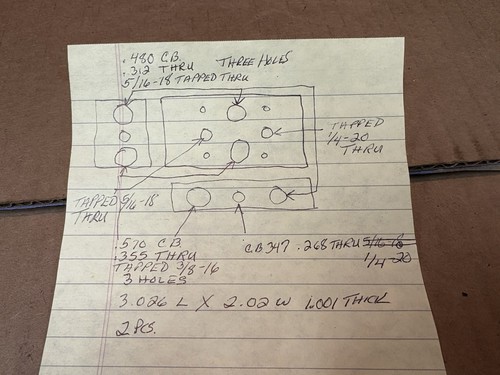 .480 C.B. THREE HOLES
.312 THRU
5/16-18 TAPPED THRU
TAPPED
1/4-20
THRU
TAPPED 5/16-18
THRU
.570 C.B. C.B 347 .268 THRU 5/16-18
.355 THRU 1/4-20
TAPPED 3/8-16
3 HOLES
3.026 L X 2.02 W 1.001 THICK
2 PCS.